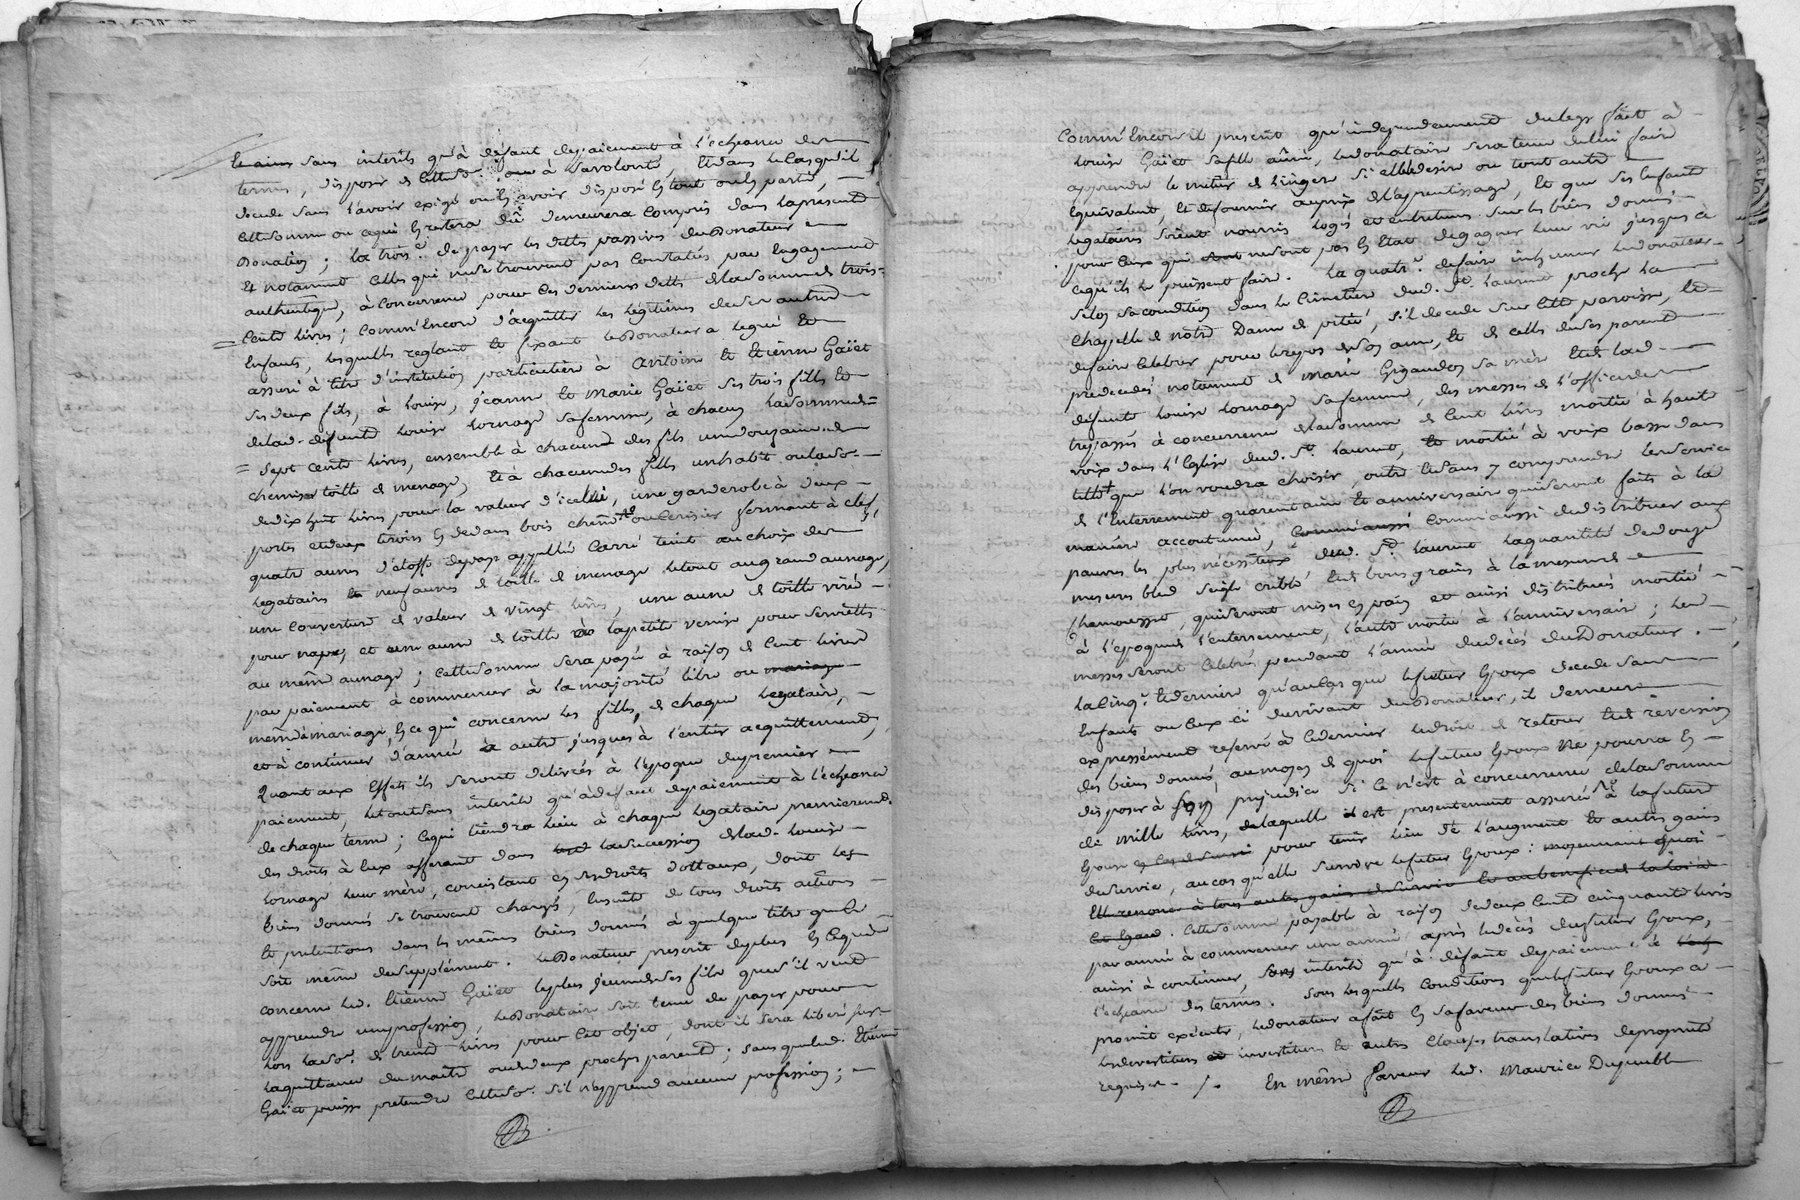 sans interits qu'à défaut de paiement à l'echeance des
termes, disposer de cette so.e à sa volonté, Et dans le cas qu'il
decede sans l'avoir exigé ou en avoir disposé en tout ou en partie,
cette somme ou ce qui en restera dû demeurera compris dans la presente
Donation; la trois.e de payer les dettes passives du Donateur
Et notamment celles qui ne se trouvent pas constatées par engagement
authentique, à concurrence pour ces dernieres dettes de la somme de trois
cents livres; comm'Encore d'acquitter les legitimes de ses autres
Enfants, lesquelles reglant et fixant le Donateur a legué et
assuré à titre d'institution particuliere à Antoine et Etienne Gaïet
ses deux fils, à Louise, Jeanne et Marie Gaïet ses trois filles et
de lad. defunte Louise Lornage sa femme, à chacun la somme de
sept cents livres, ensemble à chacun des fils une douzaine de
chemises toille de menage, et à chacune des filles un habit ou la so.
de dix huit livres pour la valeur d'icelui, une garderobe à deux
portes et deux tiroirs en dedans bois chêne ou cerisier fermant à clef,
quatre aunes d'étoffe de pays appellée carré teint au choix des
legataires neuf aunes de toille de menage le tout au grand aunage,
une couverture de valeur de vingt livres, une aune de toille virée
pour nape, et une aune de toille à la petite venise pour serviettes
au même aunage; cette somme sera payée à raison de cent livres
par paiement à commencer à la majorité libre ou mariage
même à mariage, en ce qui concerne les filles, de chaque legataire,
et à continuer d'année à autre jusques à l'entier acquittement,
Quant aux Effets ils seront delivrés à l'epoque du premier
paiement, le tout sans interits qu'à defaut de paiement à l'echeance
de chaque terme; ce qui tiendra lieu à chaque legataire premierement
des droits à eux afferant dans la succession de lad. Louise
Lornage leur mere, consistant en ses droits dottaux, dont les
biens donnés se trouvent chargés, ensuite de tous droits actions
et pretentions dans les mêmes biens donnés à quelque titre que ce
soit même de supplément. Le Donateur prescrit de plus en ce qui
concerne led. Etienne Gaïet le plus jeune de ses fils que s'il veut
apprendre une profession, le Donataire soit tenu de payer pour
lors la so.e de trente livres pour cet objet, dont il sera liberé sur
la quittance du maitre ou de deux proches parents; sans que led. Etienne
Gaïet puisse pretendre cette so.e s'il n'apprend aucune profession;
Comm'Encore il prescrit qu'independamment du legs fait à
Louise Gaïet sa fille aînée, le donataire sera tenu de lui faire
apprendre le metier de lingere si elle le desire ou tout autre
Equivalent, Et de fournir au prix de l'aprentissage, Et que ses Enfants
legataires soient nourris logés et entretenus sur les biens donnés
pour ceux qui ne sont pas en Etat de gagner leur vie jusques à
ce qu'ils le puissent faire. La quatr.e de faire inhumer le donateur
selon sa condition dans le cimetiere dud. St. Laurent proche la
chapelle de notre Dame de pitié, s'il decede sur cette paroisse, et
de faire celebrer pour le repos de son ame, et de celles de ses parents
predecedés notament de Marie Gigandon sa mere Et de lad.
defunte Louise Lornage sa femme, des messes de l'office des
trepassés à concurrence de la somme de cent livres moitié à haute
voix dans l'Eglise dud. St. Laurent, et moitié à voix basse dans
celle que l'on voudra choisir, outre et sans y comprendre les services
de l'Enterrement quarentaine et anniversaire qui seront faits à la
maniere accoutumée, comm'aussi comm'aussi de distribuer aux
pauvres les plus nécessiteux dud. St. Laurent la quantité de douze
mesures bled seigle criblé et bons grains à la mesure de
Chamousset, qui seront mises en pain et ainsi distribuées moitié
à l'epoque de l'enterrement, l'autre moitié à l'anniversaire; les
messes seront celebrées pendant l'année du decès du Donateur.
La cinq.e et derniere qu'au cas que le futur Groux decede sans
Enfants ou ceux ci du vivant du Donateur, il demeure
expressément reservé à ce dernier le droit de retour et reversion
des biens donnés, au moyen de quoi le futur Groux ne pourra en
disposer à son prejudice si ce n'est à concurrence de la somme
de mille livres, de laquelle il est presentement assuré à la future
Groux pour tenir lieu de l'augment et autres gains
de survie, au cas qu'elle survive le futur Groux: moyennant quoi
Elle renonce à tous autres gains de survie et au benefice de la loi
cette somme payable à raison de deux cents cinquante livres
par année à commencer une année après le decès du futur Groux,
ainsi à continuer, sans interits qu'à défaut de paiement à
l'echeance des termes. Sous lesquelles conditions que le futur Groux a
promit executer, le donateur a fait en sa faveur des biens donnés
les devestitures investitures et autres clauses translatives de proprieté
requises. /. En même faveur led. Maurice Dupeuble